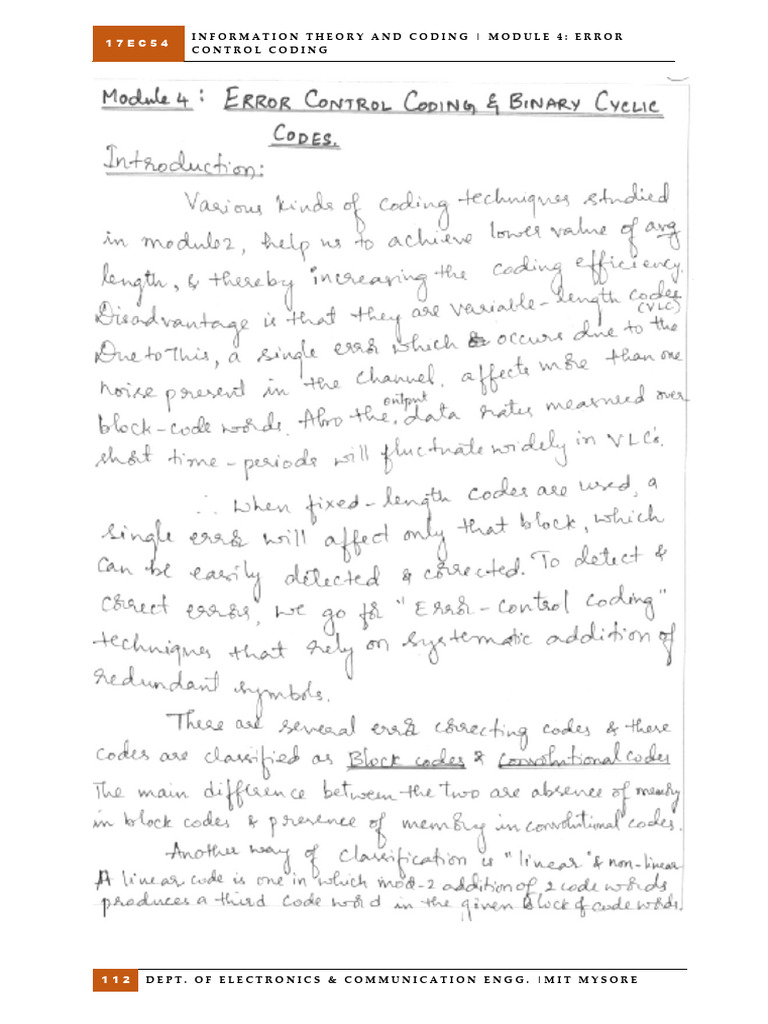 17EC54
INFORMATION THEORY AND CODING | MODULE 4: ERROR
CONTROL CODING
Module 4 : ERROR CONTROL CODING & BINARY CYCLIC
CODES.
Introduction:
Various kinds of coding techniques studied
in module2, help us to achieve lower value of avg
length, & thereby increasing the coding efficiency.
Disadvantage is that they are variable-length codes
(VLC)
Due to this, a single error which occurs due to the
noise present in the channel, affects more than one
output
block-code words. Also the, data rates measured over
short time-periods will fluctuate widely in VLC's.
∴ When fixed-length codes are used, a
single error will affect only that block, which
can be easily detected & corrected. To detect &
correct errors, we go for "Error-control coding"
techniques that rely on systematic addition of
redundant symbols.
There are several error correcting codes & these
codes are classified as Block codes & Convolutional codes
The main difference between the two are absence of memory
in block codes & presence of memory in convolutional codes.
Another way of classification is "linear" & non-linear
A linear code is one in which mod-2 addition of 2 code words
produces a third code word in the given block of code words.
112
DEPT. OF ELECTRONICS & COMMUNICATION ENGG. |MIT MYSORE